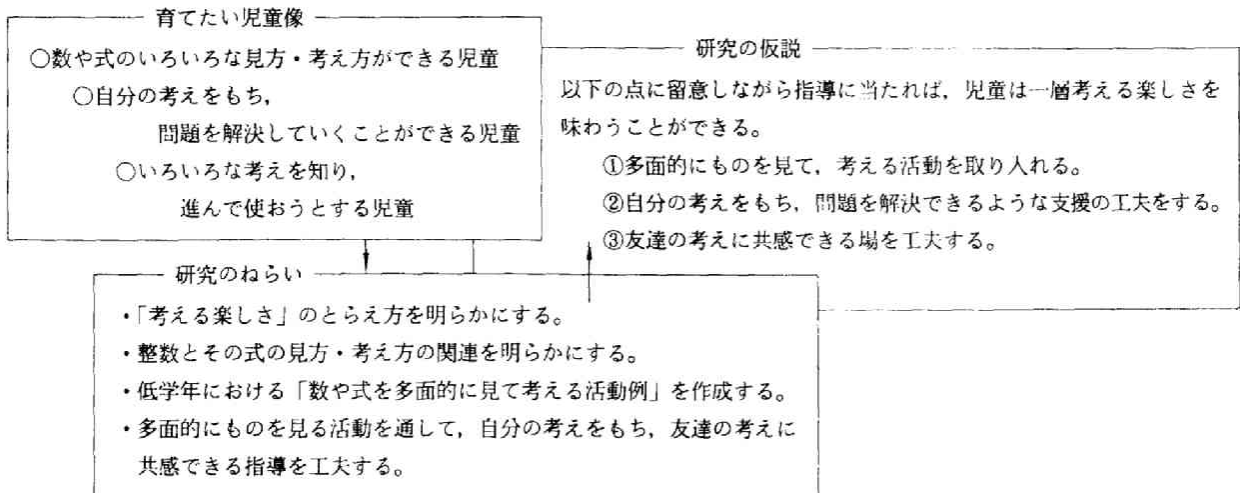 育てたい児童像
○数や式のいろいろな見方・考え方ができる児童
○自分の考えをもち，
問題を解決していくことができる児童
○いろいろな考えを知り，
進んで使おうとする児童
研究の仮説
以下の点に留意しながら指導に当たれば，児童は一層考える楽しさを
味わうことができる。
①多面的にものを見て，考える活動を取り入れる。
②自分の考えをもち，問題を解決できるような支援の工夫をする。
③友達の考えに共感できる場を工夫する。
研究のねらい
・「考える楽しさ」のとらえ方を明らかにする。
・整数とその式の見方・考え方の関連を明らかにする。
・低学年における「数や式を多面的に見て考える活動例」を作成する。
・多面的にものを見る活動を通して，自分の考えをもち，友達の考えに
共感できる指導を工夫する。